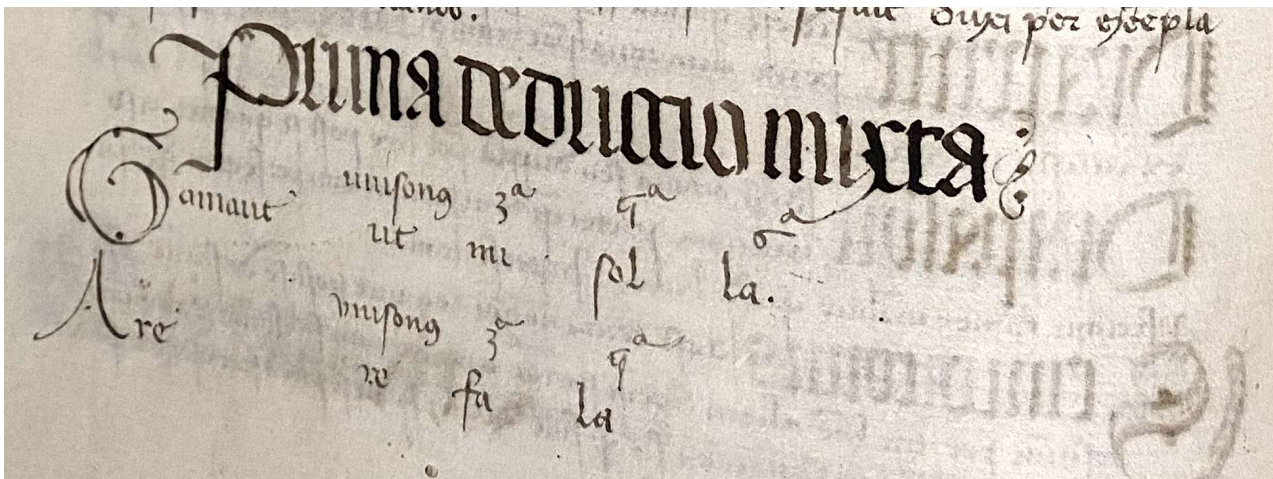 dici per exempla
Prima deduccio mixta
Gamaut unisonus 3a qa 6a
ut mi sol la.
Are unisonus 3a qa
re fa la